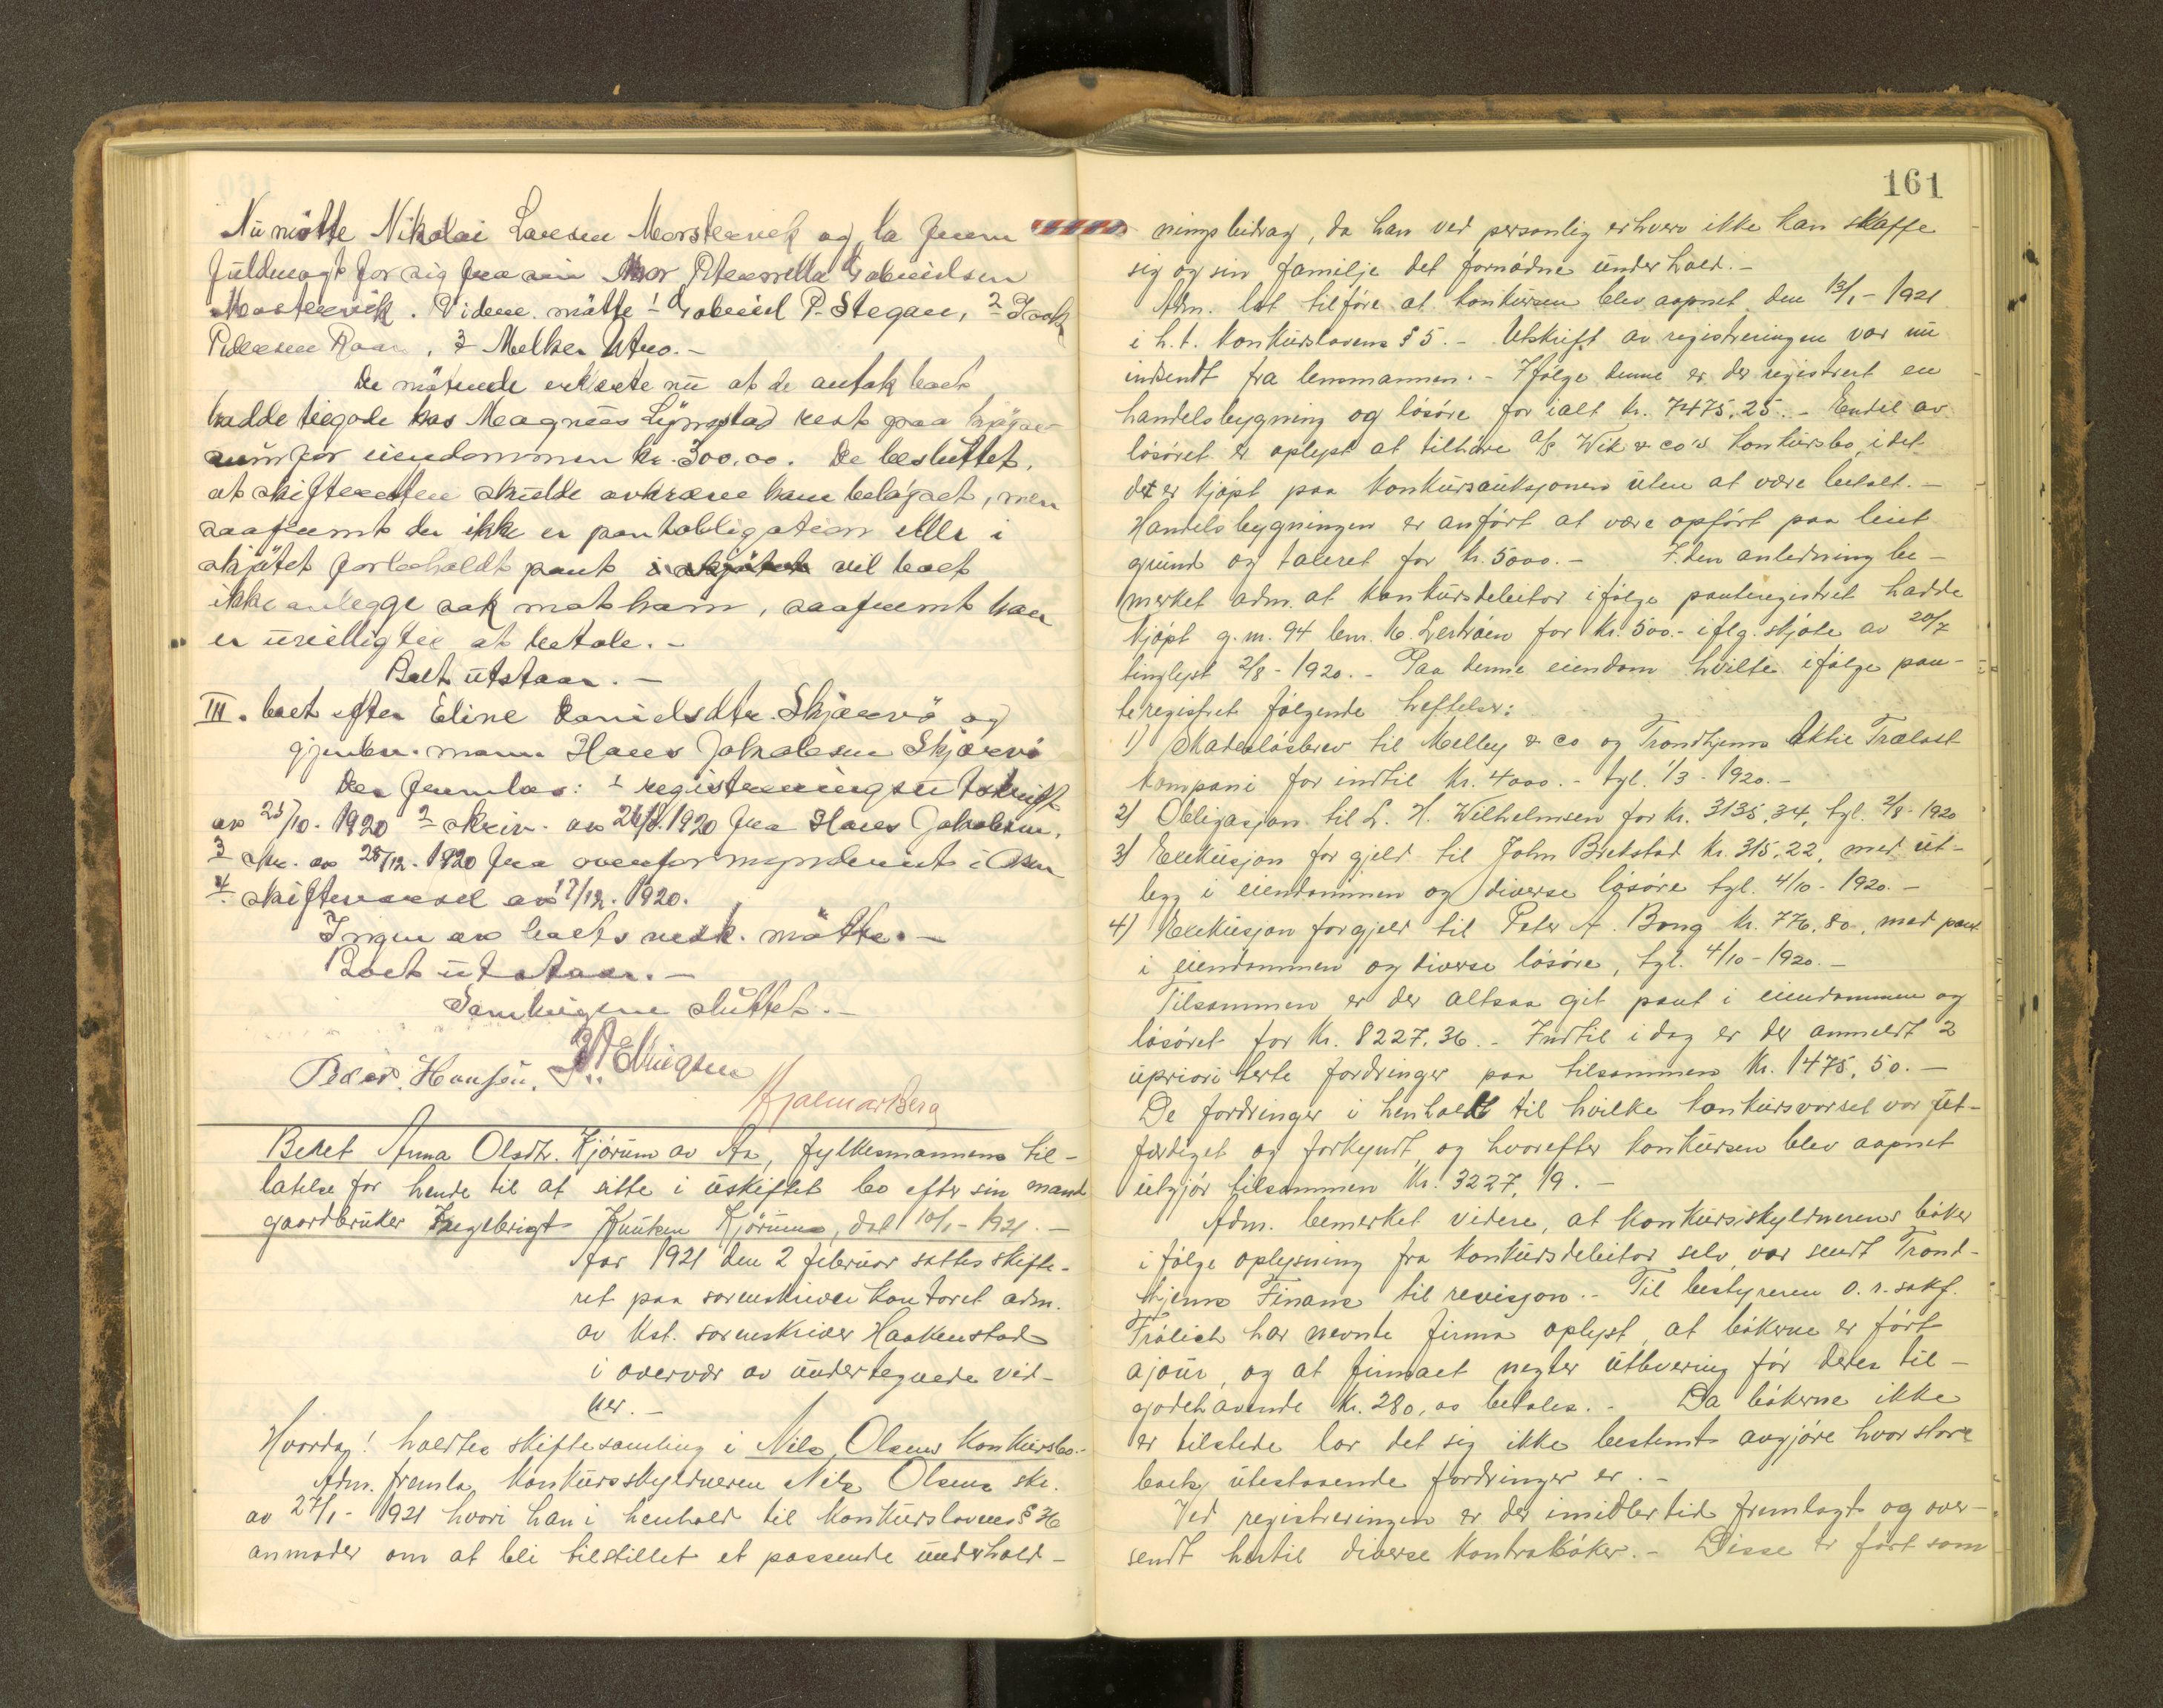 Nu møtte Nikolai Larsen Morstervik og la frem
fuldmagt for sig fra sin Mor Petternella Gabrielsen
Morstervik. Videre møtte 1 Gabriel P. Stegan, 2
Pedersen Raae, 3 Melker Utvo.-
De møtende erklærte nu at de antok boet
hadde tilgode hos Magnus Lyngstad rest paa kjøpe-
sum for eiendommen kr. 300.00. De besluttet,
at skifteretten skulde avkræve ham beløpet, men
saafremt der ikke er pantobligation eller i
skjøtet forbeholdt pant i skjøtet vil boet
ikke anlegge sak mot ham, saafremt han
er uvillig til at betale.-
Boet utstaar.-
III. boet efter Eline Danielsdtr. Skjærvø og
gjenlev. mann Hans Jakobsen Skjærvø
Der fremlaa: 1 registreringsutskrift
av 25/10. 1920 2 skriv. av 26/10.1920 fra Hans Jakobsen,
3 skr. av 28/12. 1920 fra overformynderiet i Osen
4 skiftevarsel av 17/12. 1920.
Ingen av boets vedk. møtte.-
Boet utstaar.-
Samlingen sluttet.-
Peder Hansen. Ellingsen
Hjalmar Berg
Beret Anna Olsdtr. Kjørum av Aa, fylkesmannens til-
latelse for hende til at sitte i uskiftet bo efter sin mand
gaardbruker Ingebrigt Knutsen Kjørum, dat 10/1-1921.-
Aar 1921 den 2 februar sattes skifte-
ret paa sorenskriverkontoret adm.
av Kst. sorenskriver Haakenstad
i overvær av undertegnede vid-
ner.-
Hvorda! holdtes skiftesamling i Nils Olsens Konkursbo.-
Adm. fremla konkursskyldneren Nils Olsens skr.
av 27/1- 1921 hvori han i henhold til konkurslovens § 36
anmoder om at bli tilstillet et passende underhold-
161
ningsbidrag, da han ved personlig erhverv ikke kan skaffe
sig og sin familje det fornødne underhold.-
Adm. lot tilføre at konkursen blev aapnet den 13/1- 1921
i h.t. konkurslovens § 5.- Utskrift av registreringen var nu
indsendt fra lensmannen.- Ifølge denne er der registrert en
handelsbygning og løsøre for ialt kr. 7475,25.- Endel av
løsøret er oplyst at tilhøre A/S Wik & co's konkursbo, idet
det er kjøpt paa konkursauksjonen uten at være betalt.-
Handelsbygningen er anført at være opført paa leiet
grund og taksert for kr. 5000.- I den anledning be-
merket adm. at konkursdebitor ifølge panteregistret hadde
kjøpt g.nr. 94 br.nr. 16 Lerhøen for kr. 500.- iflg. skjøte av 20/7
tinglyst 2/8-1920.- Paa denne eiendom hvilte ifølge pan-
teregistret følgende heftelser:
1) Skadesløsbrev til Melbey & co og Trondhjems Aktie Trælast
kompani for indtil kr. 4000.- tgl. 1/3-1920.-
2) Obligasjon til L. H. Wilhelmsen for kr. 3135,34, tgl. 2/8-1920
3) Eksekusjon for gjeld til John Bretstad kr. 315,22, med ut-
legg i eiendommen og diverse løsøre tgl. 4/10-1920.-
4) Eksekusjon for gjeld til Peter A. Bong kr. 776,80, med pant
i eiendommen og diverse løsøre, tgl. 4/10-1920.-
Tilsammen er der altsaa git pant i eiendommen og
løsøret for kr. 8227,36.- Indtil i dag er der anmeldt 2
upriori terte fordringer paa tilsammen kr. 1475,50.-
De fordringer i henhold til hvilke konkursvarsel var ut-
ferdiget og forkyndt, og hvorefter konkursen blev aapnet
utgjør tilsammen kr. 3227,19.-
Adm. bemerket videre, at konkursskyldnerens bøker
ifølge oplysning fra konkursdebitor selv var sendt Trond-
hjems Finans til revisjon.- Til bestyreren o.r.sakf.
Frølich har nevnte firma oplyst, at bøkerne er ført
ajour, og at firmaet negter utlevering før deres til-
godehavende kr. 280,00 betales.- Da bøkerne ikke
er tilstede lar det sig ikke bestemt avgjøre hvor store
boets utestaaende fordringer er.-
Ved registreringen er der imidlertid fremlagt og over-
sendt hertil diverse kontrabøker.- Disse er ført som